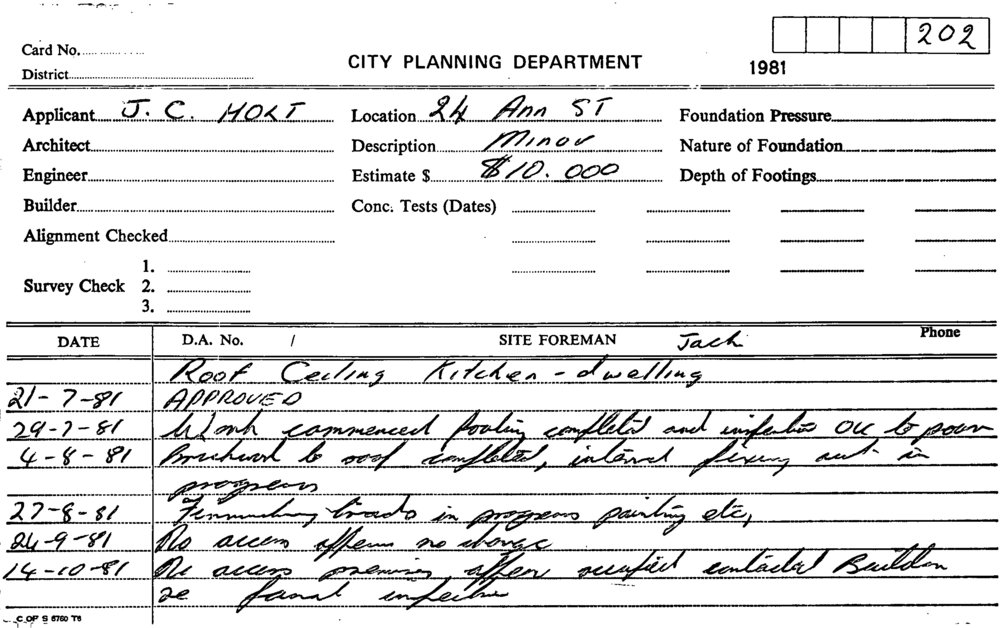 202
Card No.
CITY PLANNING DEPARTMENT
1981
District
Applicant J. C. HOLT Location 24 Ann ST Foundation Pressure
Architect Description Minor Nature of Foundation
Engineer Estimate $ $10.000 Depth of Footings
Builder Conc. Tests (Dates)
Alignment Checked
1.
Survey Check 2.
3.
DATE D.A. No. / SITE FOREMAN Jack Phone
Roof Ceiling Kitchen - dwelling
21-7-81 APPROVED
29-7-81 Work commenced footing completed and inspected OK to pour
4-8-81 Brickwork to roof completed, internal fixing out in
progress
27-8-81 Finishing trades in progress painting etc,
24-9-81 No access appears no change
14-10-81 No access premises appear occupied contacted Builder
re final inspection
C OF S 6760 T6